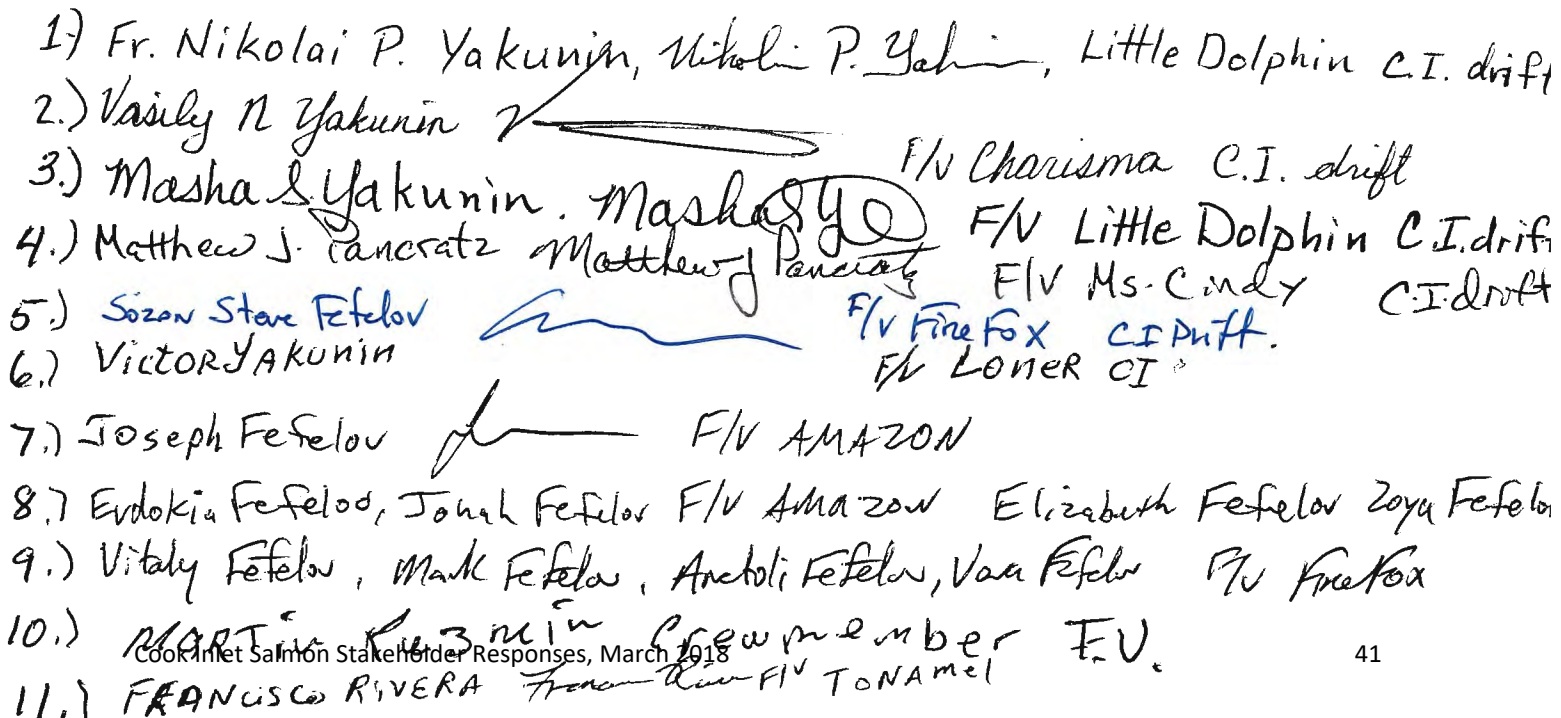 1.) Fr. Nikolai P. Yakunin, Nikolai P. Yakunin, Little Dolphin C.I. drift
2.) Vasily N Yakunin F/V Charisma C.I. drift
3.) Masha S. Yakunin. Masha S Y F/V Little Dolphin C.I. drif
4.) Matthew J. Pancratz Matthew J Pancratz F/V Ms. Cindy C.I. drift
5.) Sozon Steve Fefelov F/V FireFox CI Drift.
6.) Victor Yakunin F/V Loner CI
7.) Joseph Fefelov F/V AMAZON
8.) Evdokia Fefelov, Jonah Fefelov F/V Amazon Elizabeth Fefelov Zoya Fefelo
9.) Vitaly Fefelov, Mark Fefelov, Anatoli Fefelov, Fefelov F/V FireFox
10.) Martin Kuzmin Crewmember F.V.
Cook Inlet Salmon Stakeholder Responses, March 2018 41
11.) FRANCISCO RIVERA F/V TONAMEL